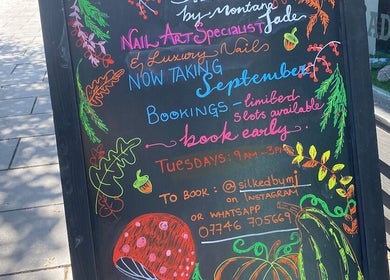 by Montana Jade
NAIL ART SPECIALIST
& Luxury Nails
NOW TAKING
September
BOOKINGS - limited
slots available
book early
TUESDAYS: 9AM - 3PM
TO BOOK: @silkedbymj
on INSTAGRAM
OR WHATSAPP
07746 705669